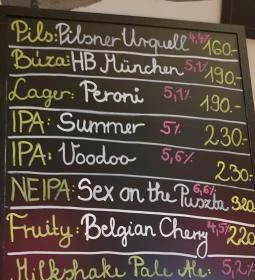 Pils: Pilsner Urquell 4,4% 160.-
Búza: HB München 5,1% 190.-
Lager: Peroni 5,1% 190.-
IPA: Summer 5% 230.-
IPA: Voodoo 5,6% 230.-
NEIPA: Sex on the Puszta 6,6% 320
Fruity: Belgian Cherry 4,5% 220
Milkshake Pale Ale 5,2%